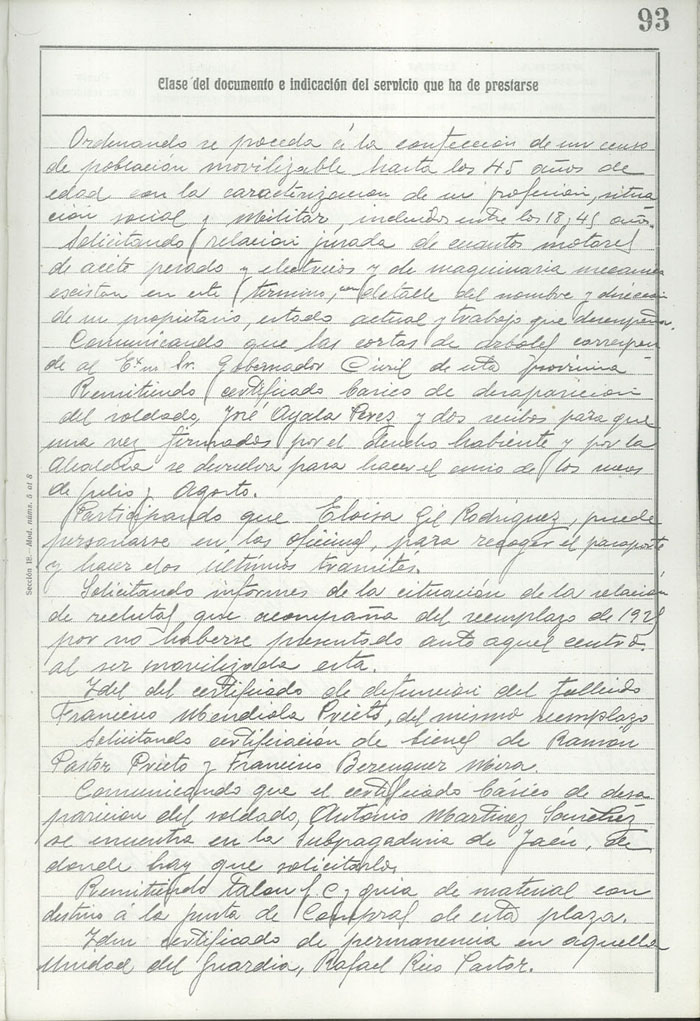 93
Clase del documento e indicación del servicio que ha de prestarse
Ordenando se proceda á la confección de un censo
de población movilizable hasta los 45 años de
edad con la caracterizacion de su profesion, situa
ción social y Militar, incluidos entre los 18 y 45 años.
Solicitando relacion jurada de cuantos motores
de aceite pesado y electricos y de maquinaria mecanica
escistan en este termino, con detalle del nombre y direccion
de su propietario, estado actual y trabajo que desempeña.
Comunicando que las cortas de arboles correspon
de al Exmo Sr. Gobernador Civil de esta provincia
Remitiendo certificado básico de desaparicion
del soldado, José Ayala Perez y dos recibos para que
una vez firmados por el derecho habiente y por la
Alcaldia se devuelva para hacer el envio de los meses
de julio y Agosto.
Participando que Eloisa Gil Rodriguez, puede
personarse en las oficinas, para recoger el pasaporte
y hacer los últimos tramites.
Solicitando informes de la situación de la relación
de reclutas que acompaña del reemplazo de 192
por no haberse presentado ante aquel centro
al ser movilizada esta.
Idel del certificado de defuncion del fallecido
Francisco Mendiola Prieto, del mismo reemplazo
Solicitando certificación de bienes de Ramon
Pastor Prieto y Francisco Berenguer Mira.
Comunicando que el certificado básico de desa
parición del soldado, Antonio Martinez Sanchez
se encuentra en la Subpagaduria de Jaén, de
donde hay que solicitarlo
Remitiendo talon f c y guia de material con
destino á la junta de Compras de esta plaza.
Idem certificado de permanencia en aquella
Unidad del Guardia, Rafael Rico Pastor.
Sección 18.-Mod. núms. 5 al 8